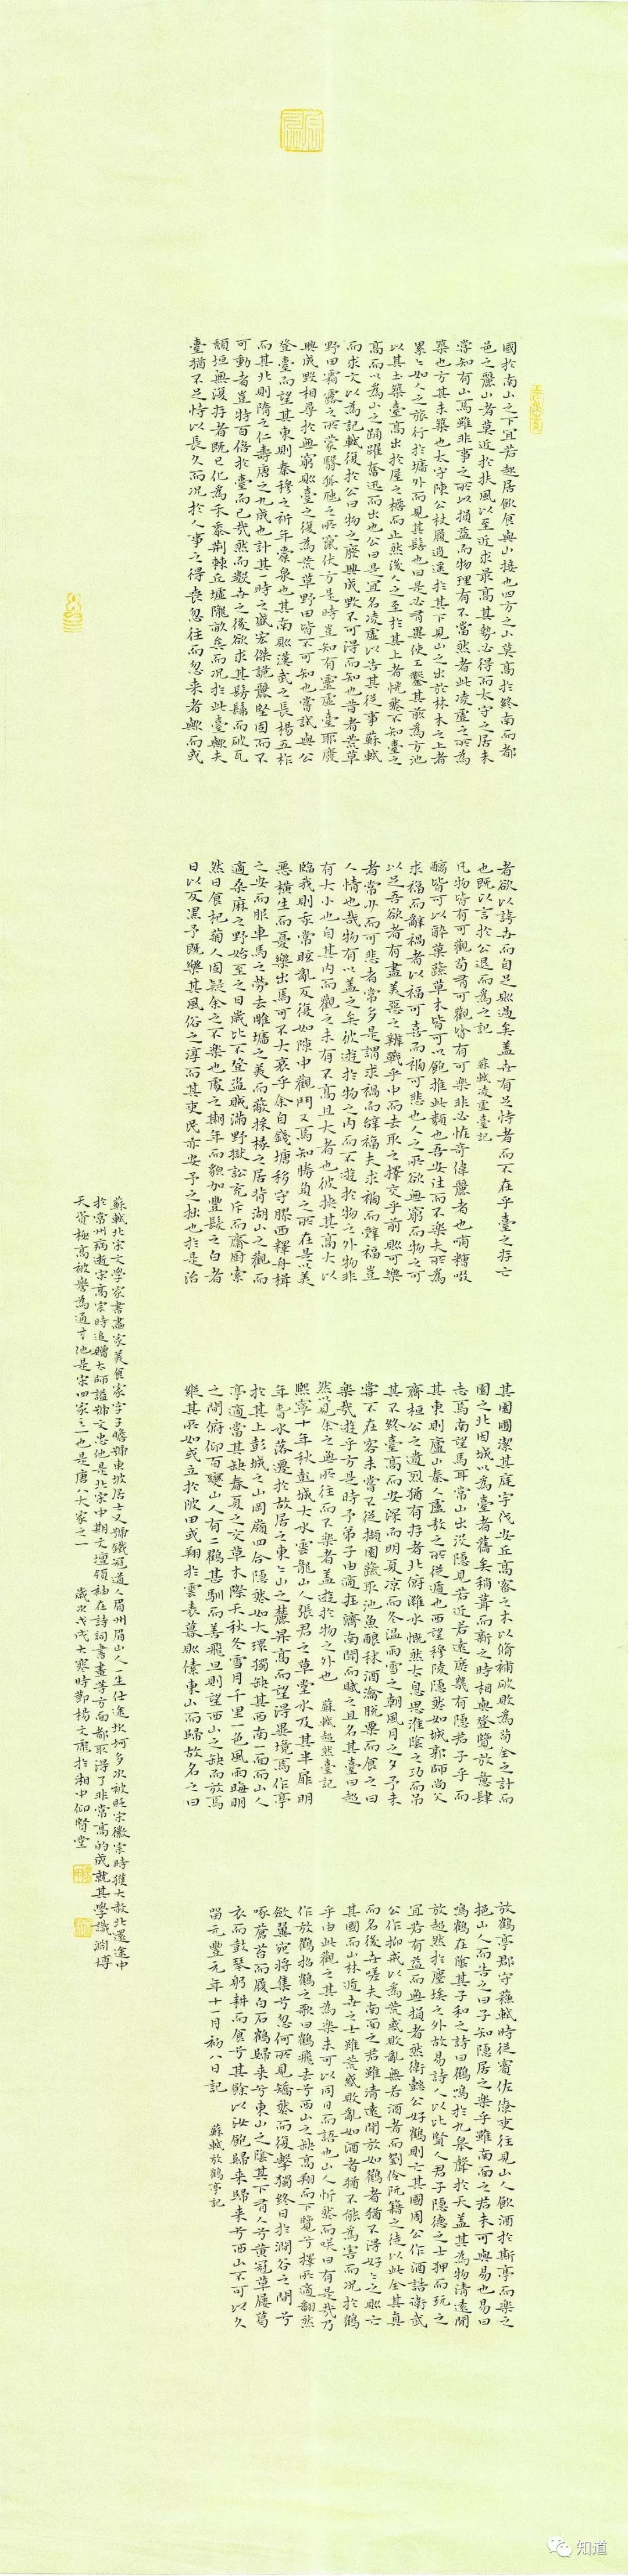 國於南山之下宜若起居飲食與山接也四方之山莫高於終南而都
邑之麗山者莫近於扶風以至近求最高其勢必得而太守之居未
嘗知有山焉雖非事之所以損益而物理有不當然者此凌虛之所為
築也方其未築也太守陳公杖履逍遙於其下見山之出於林木之上者
累々如人之旅行於墻外而見其髻也曰是必有異使工鑿其前為方池
以其土築臺高出於屋之檐而止然後人之至於其上者恍然不知臺之
高而以為山之踊躍奮迅而出也公曰是宜名凌虛以告其從事蘇軾
而求文以為記軾復於公曰物之廢興成毀不可得而知也昔者荒草
野田霜露之所蒙翳狐虺之所竄伏方是時豈知有靈虛臺耶廢
興成毀相尋於無窮則臺之復為荒草野田皆不可知也嘗試與公
登臺而望其東則秦穆之祈年橐泉也其南則漢武之長楊五柞
而其北則隋之仁壽唐之九成也計其一時之盛宏傑詭麗堅固而不
可動者豈特百倍於臺而已哉然而數世之後欲求其髣髴而破瓦
頹垣無復存者既已化為禾黍荆棘丘墟隴畝矣而況於此臺歟夫
臺猶不足恃以長久而況於人事之得喪忽往而忽来者歟而或
者欲以誇世而自足則過矣蓋世有足恃者而不在乎臺之存亡
也既以言於公退而為之記 蘇軾凌虛臺記
凡物皆有可觀苟有可觀皆有可樂非必怪奇偉麗者也餔糟啜
醨皆可以醉菓蔬草木皆可以飽推此類也吾安往而不樂夫所為
求福而辭禍者以福可喜而禍可悲也人之所欲無窮而物之可
以足吾欲者有盡美惡之辨戰乎中而去取之擇交乎前則可樂
者常少而可悲者常多是謂求禍而辭福夫求禍而辭福豈
人情也哉物有以蓋之矣彼遊於物之內而不遊於物之外物非
有大小也自其內而觀之未有不高且大者也彼挾其高大以
臨我則余常眩亂反復如隙中觀鬥又焉知勝負之所在是以美
惡橫生而憂樂出焉可不大哀乎余自錢塘移守膠西釋舟楫
之安而服車馬之勞去雕墻之美而蔽採椽之居背湖山之觀而
適桑麻之野始至之日歲比不登盜賊滿野獄訟充斥而齋廚索
然日食杞菊人固疑余之不樂也處之期年而顏加豐髮之白者
日以反黑予既樂其風俗之淳而其吏民亦安予之拙也於是治
其園圃潔其庭宇伐安丘高密之木以脩補破敗為苟全之計而
園之北因城以為臺者舊矣稍葺而新之時相與登覽放意肆
志焉南望馬耳常山出沒隱見若近若遠庶幾有隱君子乎而
其東則廬山秦人盧敖之所從遁也西望穆陵隱然如城郭師尚父
齊桓公之遺烈猶有存者北俯濰水慨然太息思淮陰之功而吊
其不終臺高而安深而明夏涼而冬溫雨雪之朝風月之夕予未
嘗不在客未嘗不從擷園蔬取池魚釀秫酒瀹脫粟而食之曰
樂哉遊乎方是時予弟子由適在濟南聞而賦之且名其臺曰超
然以見余之無所往而不樂者蓋遊於物之外也 蘇軾超然臺記
熙寧十年秋彭城大水雲龍山人張君之草堂水及其半扉明
年春水落遷於故居之東々山之麓昇高而望得異境焉作亭
於其上彭城之山岡嶺四合隱然如大環獨缺其西南一面而山人
亭適當其缺春夏之交草木際天秋冬雪月千里一色風雨晦明
之間俯仰百變山人有二鶴甚馴而善飛旦則望西山之缺而放焉
縱其所如或立於陂田或翔於雲表暮則傃東山而歸故名之曰
放鶴亭郡守蘇軾時從賓佐僚吏往見山人飲酒於斯亭而樂之
挹山人而告之曰子知隱居之樂乎雖南面之君未可與易也易曰
鳴鶴在陰其子和之詩曰鶴鳴於九皋聲於天蓋其為物清遠閒
放超然於塵埃之外故易詩人以比賢人君子隱德之士狎而玩之
宜若有益而無損者然衛懿公好鶴則亡其國周公作酒誥衛武
公作抑戒以為荒惑敗亂無若酒者而劉伶阮籍之徒以此全其真
而名後世嗟夫南面之君雖清遠閒放如鶴者猶不得好々之則亡
其國而山林遁世之士雖荒惑敗亂如酒者猶不能為害而況於鶴
乎由此觀之其為樂未可以同日而語也山人忻然而咲曰有是哉乃
作放鶴招鶴之歌曰鶴飛去兮西山之缺高翔而下覽兮擇所適翻然
斂翼宛將集兮忽何所見矯然而復擊獨終日於澗谷之間兮
啄蒼苔而履白石鶴歸来兮東山之陰其下有人兮黃冠草屨葛
衣而鼓琴躬耕而食兮其餘以汝飽歸来歸来兮西山不可以久
留元豐元年十一月初八日記 蘇軾放鶴亭記
蘇軾北宋文學家書畫家美食家字子瞻號東坡居士又號鐵冠道人眉州眉山人一生仕途坎坷多次被貶宋徽宗時獲大赦北還途中
於常州病逝宋高宗時追贈太師謚號文忠他是北宋中期文壇領袖在詩詞書畫等方面都取得了非常高的成就其學識淵博
天資極高被譽為通才他是宋四家之一也是唐八大家之一 歲次戊戌大寒時鄧楊文龐於湘中仰賢堂
知道